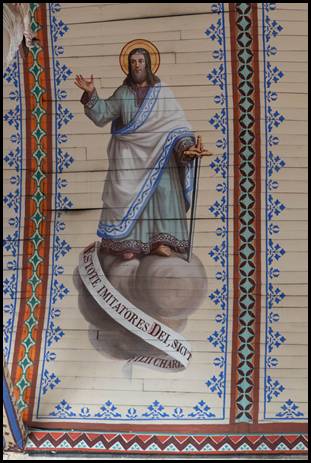 ESTOTE IMITATORES DEI, SICUT
FILII CHARI